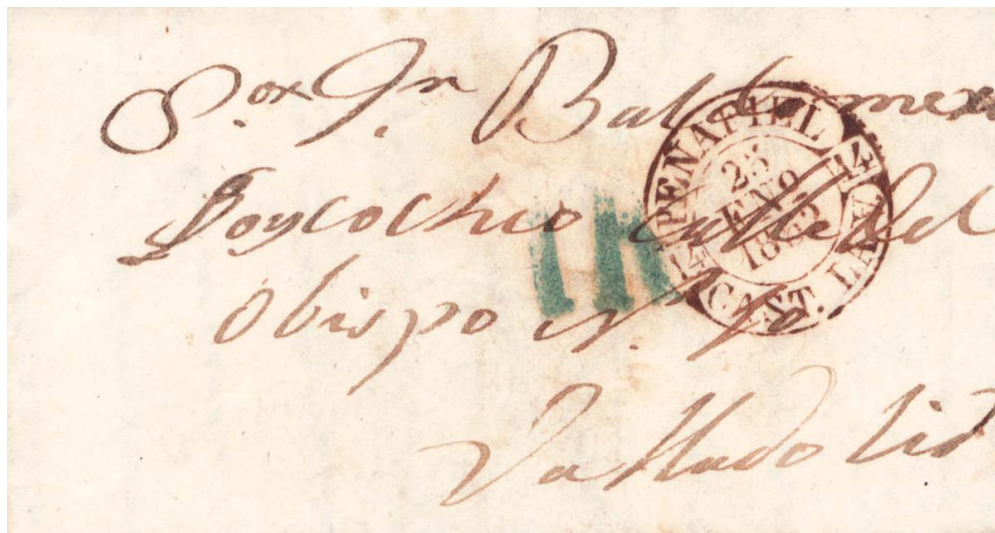 Sor Dn Baldomero
Goycochea Calle del
Obispo N. 10
Valladolid
1R
PEÑAFIEL
14 14
23
ENO
CAST. LA V.